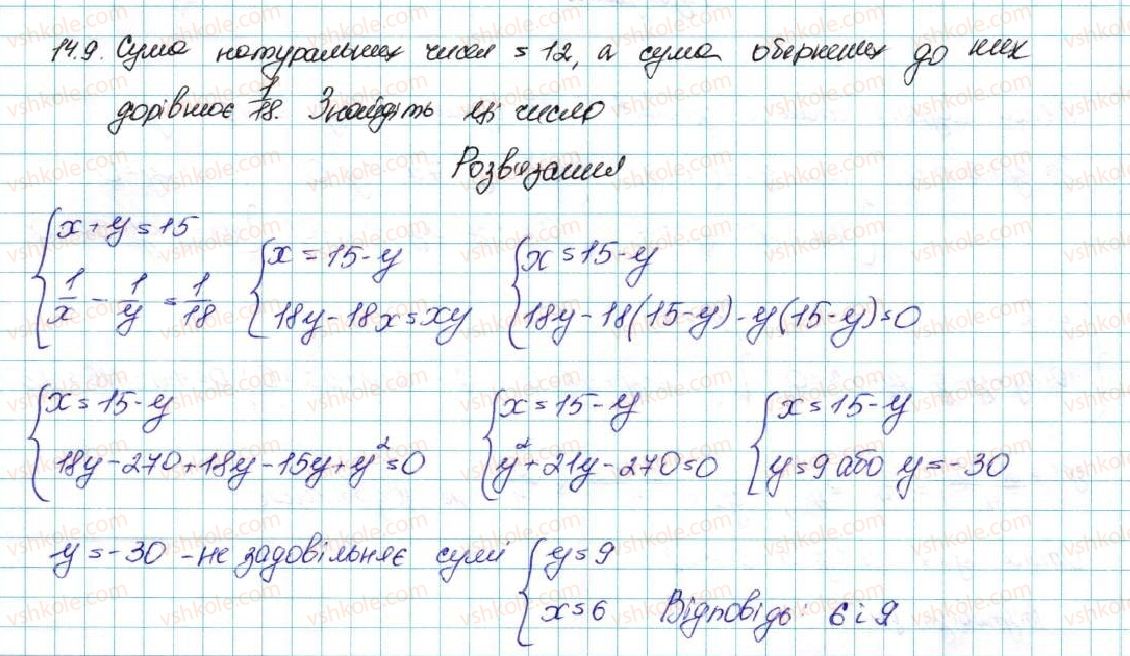 14.9. Сума натуральних чисел = 12, а сума обернених до них
дорівнює 1/18. Знайдіть ці числа
Розв'язання
{x + y = 15; 1/x - 1/y = 1/18 {x = 15 - y; 18y - 18x = xy {x = 15 - y; 18y - 18(15 - y) - y(15 - y) = 0
{x = 15 - y; 18y - 270 + 18y - 15y + y² = 0 {x = 15 - y; y² + 21y - 270 = 0 {x = 15 - y; y = 9 або y = -30
y = -30 - не задовільняє сумі {y = 9; x = 6 Відповідь: 6 і 9
vshkole.com